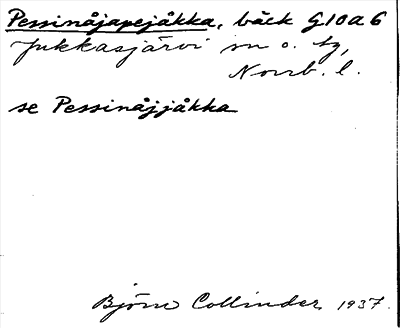 Pessinåjapejåkka, bäck G.10 a 6
Jukkasjärvi sn o. tg,
Norrb. l.
se Pessinåjjåkka
Björn Collinder 1937.